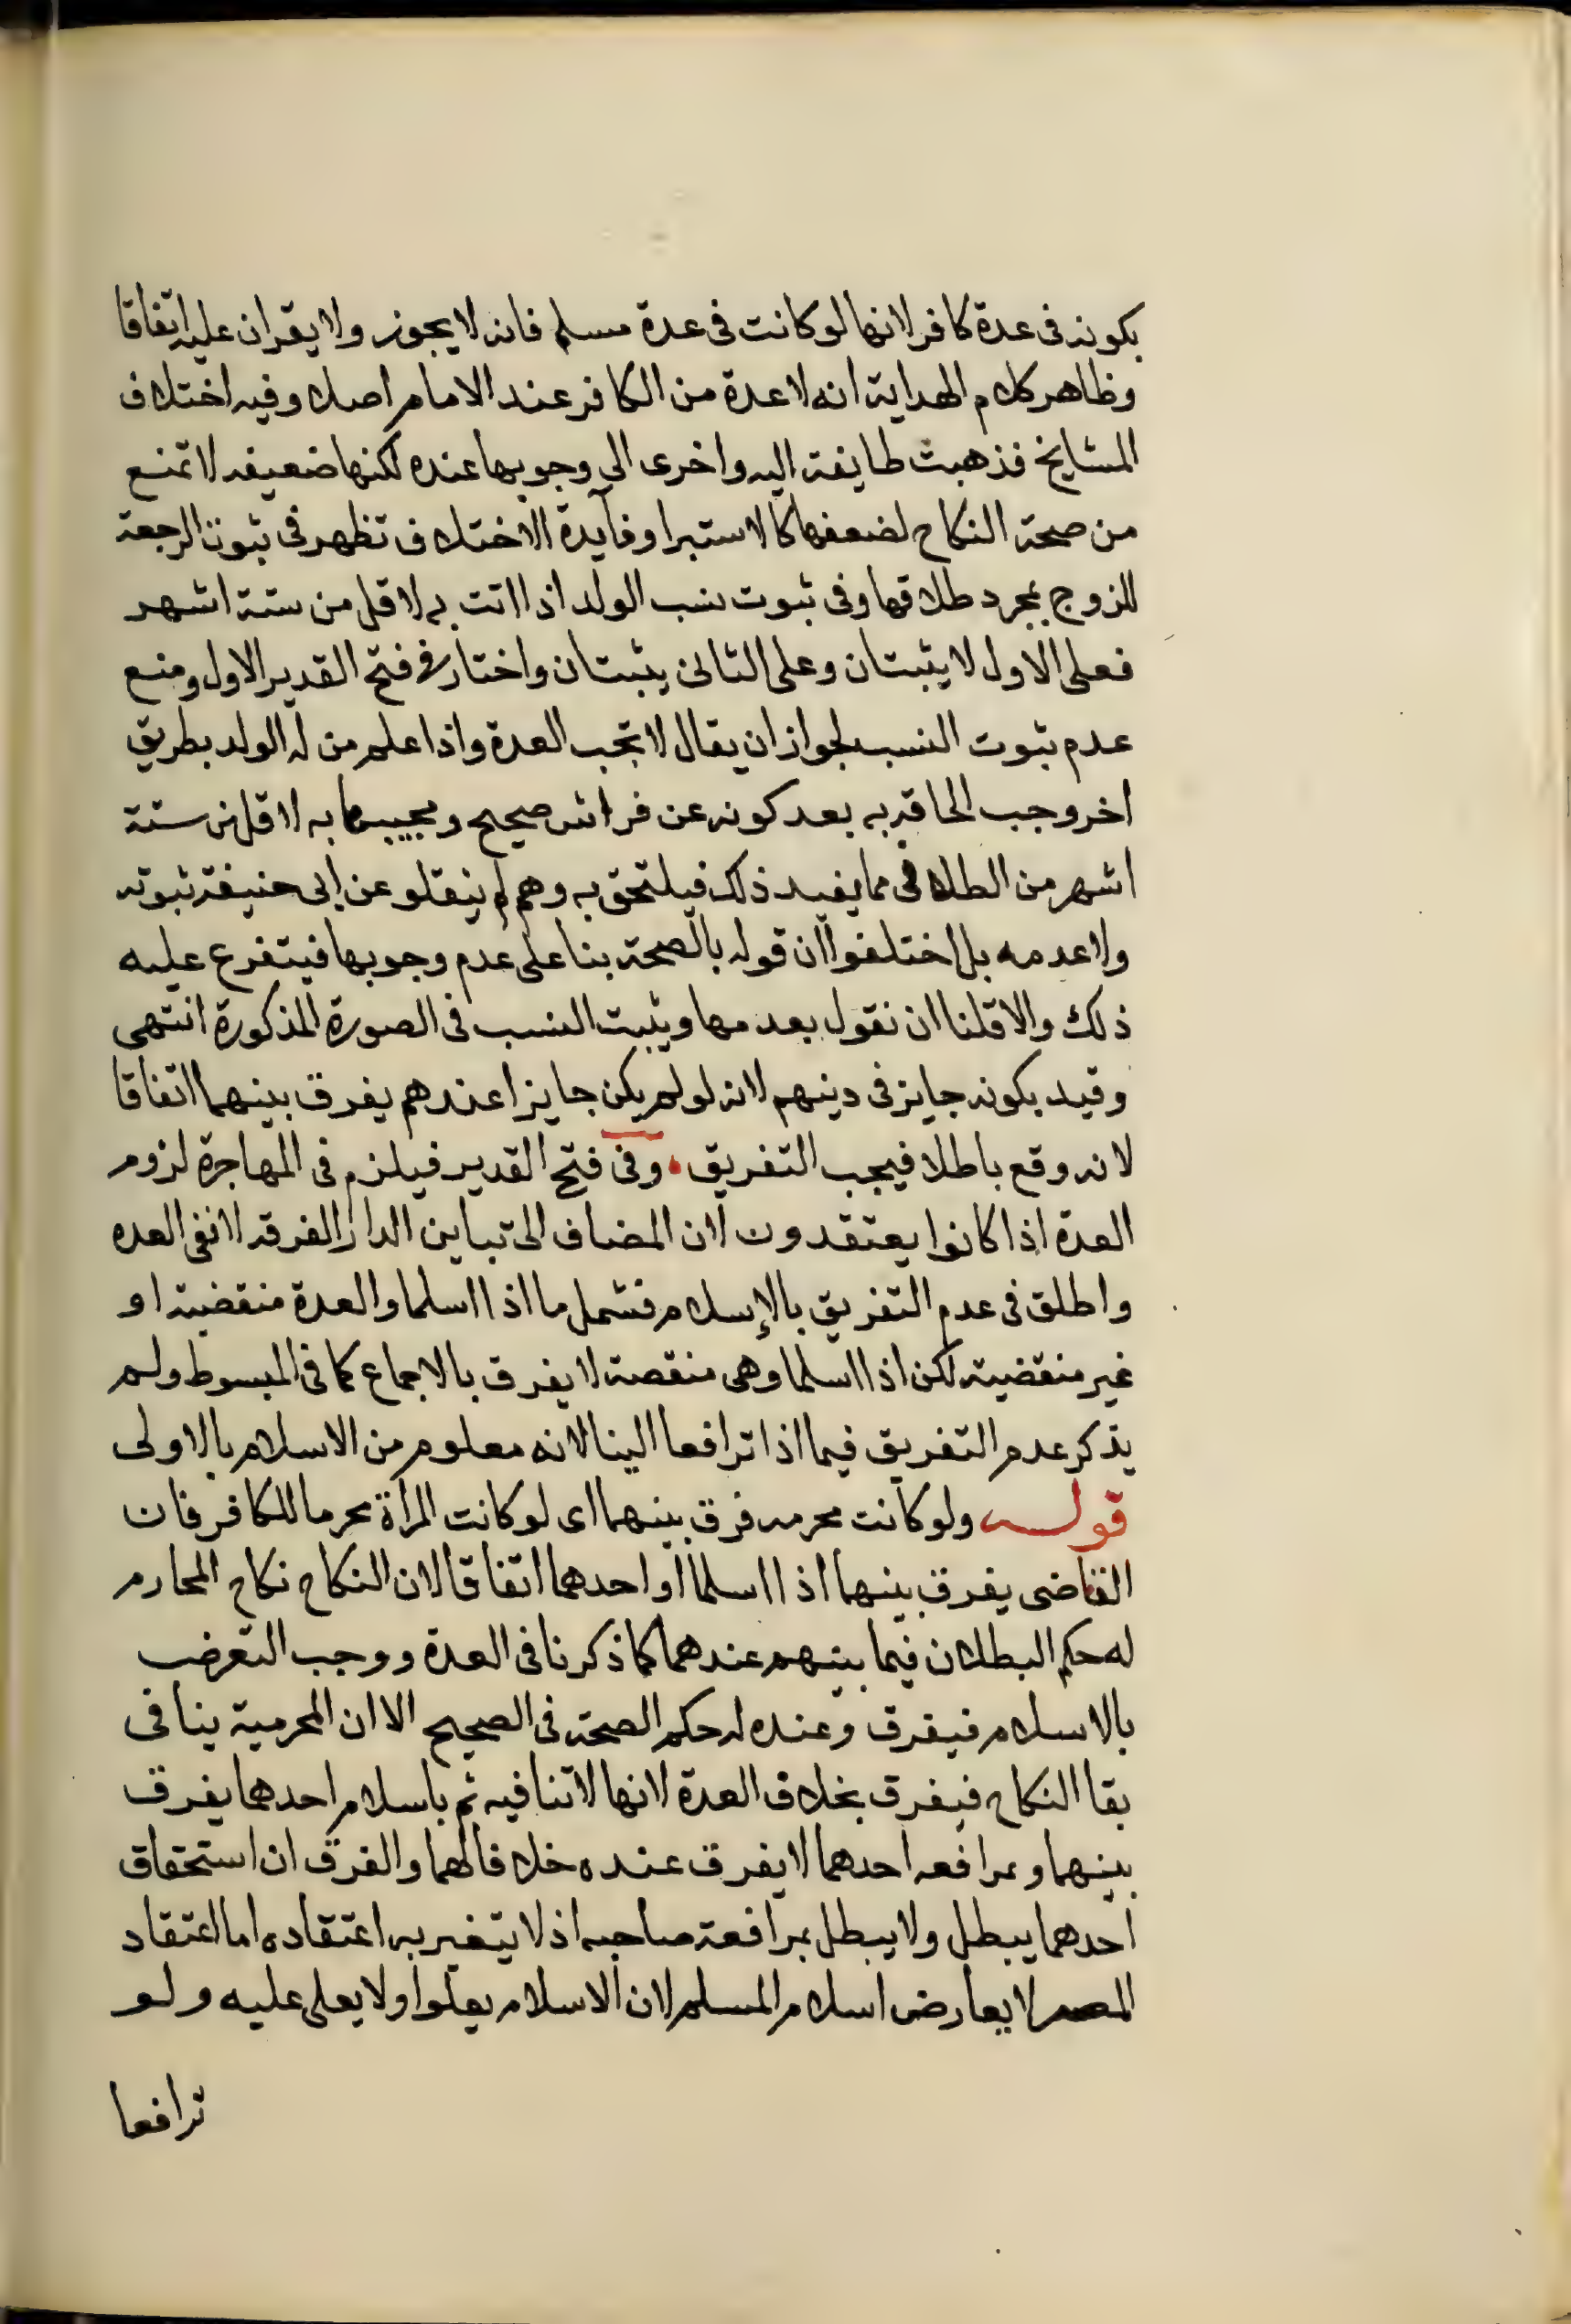 بكونه فى عدة كافر لانها لو كانت فى عدة مسلم فانه لا يجوز ولا يقران عليه اتفاقا
وظاهر كلام الهداية انه لا عدة من الكافر عند الامام اصلا وفيه اختلاف
المشايخ فذهبت طايفة اليه واخرى الى وجوبها عنده لكنها ضعيفه لا تمنع
من صحة النكاح لضعفها كالاستبرا وفآيدة الاختلاف تظهر فى ثبوت الرجعة
للزوج بمجرد طلاقها وفى ثبوت نسب الولد اذا اتت به لاقل من ستة اشهر
فعلى الاول لا يثبتان وعلى الثانى يثبتان واختار فى فتح القدير الاول ومنع
عدم ثبوت النسب لجواز ان يقال لا تجب العدة واذا علم من له الولد بطريق
اخر وجب الحاقه به بعد كونه عن فراش صحيح ومجيبها به لاقل من ستة
اشهر من الطلاق مما يفيد ذلك فيلتحق به وهم لم ينقلو عن ابى حنيفة ثبوته
ولا عدمه بل اختلفوا ان قوله بالصحة بنا على عدم وجوبها فيتفرع عليه
ذلك والا قلنا ان نقول بعدمها ويثبت النسب فى الصورة المذكورة انتهى
وقيد بكونه جايز فى دينهم لانه لو لم يكن جايزا عندهم يفرق بينهما اتفاقا
لانه وقع باطلا فيجب التفريق . وفى فتح القدير فيلزم فى المهاجرة لزوم
العدة اذا كانوا يعتقدون لان المضاف الى تباين الدار الفرقه لا نفى العده
واطلق فى عدم التفريق بالإسلام فشمل ما اذا اسلما والعدة منقضية او
غير منقضية لكن اذا اسلما وهى منقصة لا يفرق بالاجماع كما فى المبسوط ولم
يذكر عدم التفريق فيما اذا ترافعا الينا لانه معلوم من الاسلام بالاولى
قوله ولو كانت محرمه فرق بينهما اى لو كانت المراة محرما للكافر فان
القاضى يفرق بينهما اذا اسلما او احدهما اتفاقا لان النكاح نكاح المحارم
له حكم البطلان فيما بينهم عندهما كما ذكرنا فى العدة ووجب التعرض
بالاسلام فيفرق وعنده له حكم الصحة فى الصحيح الا ان المحرمية ينافى
بقا النكاح فيفرق بخلاف العدة لانها لا تنافيه ثم باسلام احدهما يفرق
بينهما وبمرافعه احدهما لا يفرق عنده خلافا لهما والفرق ان استحقاق
احدهما يبطل ولا يبطل بمرافعة صاحبه اذ لا يتغير به اعتقاده اما اعتقاد
المصر لا يعارض اسلام المسلم لان الاسلام يعلوا ولا يعلى عليه ولو
ترافعا